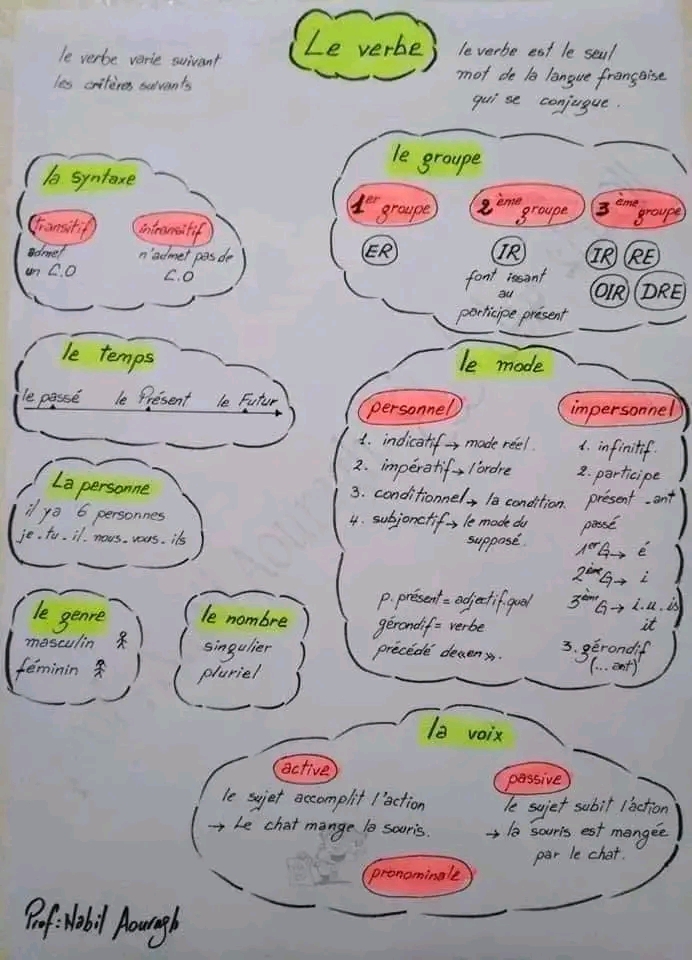 Le verbe
le verbe varie suivant
les critères suivants
le verbe est le seul
mot de la langue française
qui se conjugue.
la syntaxe
transitif
admet
un C.O
intransitif
n'admet pas de
C.O
le groupe
1er groupe
ER
2ème groupe
IR
font issant
au
participe présent
3ème groupe
IR RE
OIR DRE
le temps
le passé le Présent le Futur
La personne
il ya 6 personnes
je-tu-il-nous-vous-ils
le genre
masculin
féminin
le nombre
singulier
pluriel
le mode
personnel
1. indicatif → mode réel.
2. impératif → l'ordre
3. conditionnel → la condition.
4. subjonctif → le mode du
supposé.
p. présent = adjectif.qual
gérondif = verbe
précédé de «en».
impersonnel
1. infinitif.
2. participe
présent -ant
passé
1er G → é
2ème G → i
3ème G → i.u.is
it
3. gérondif
(...ant)
la voix
active
le sujet accomplit l'action
→ Le chat mange la souris.
passive
le sujet subit l'action
→ la souris est mangée
par le chat.
pronominale
Prof: Nabil Aouragh